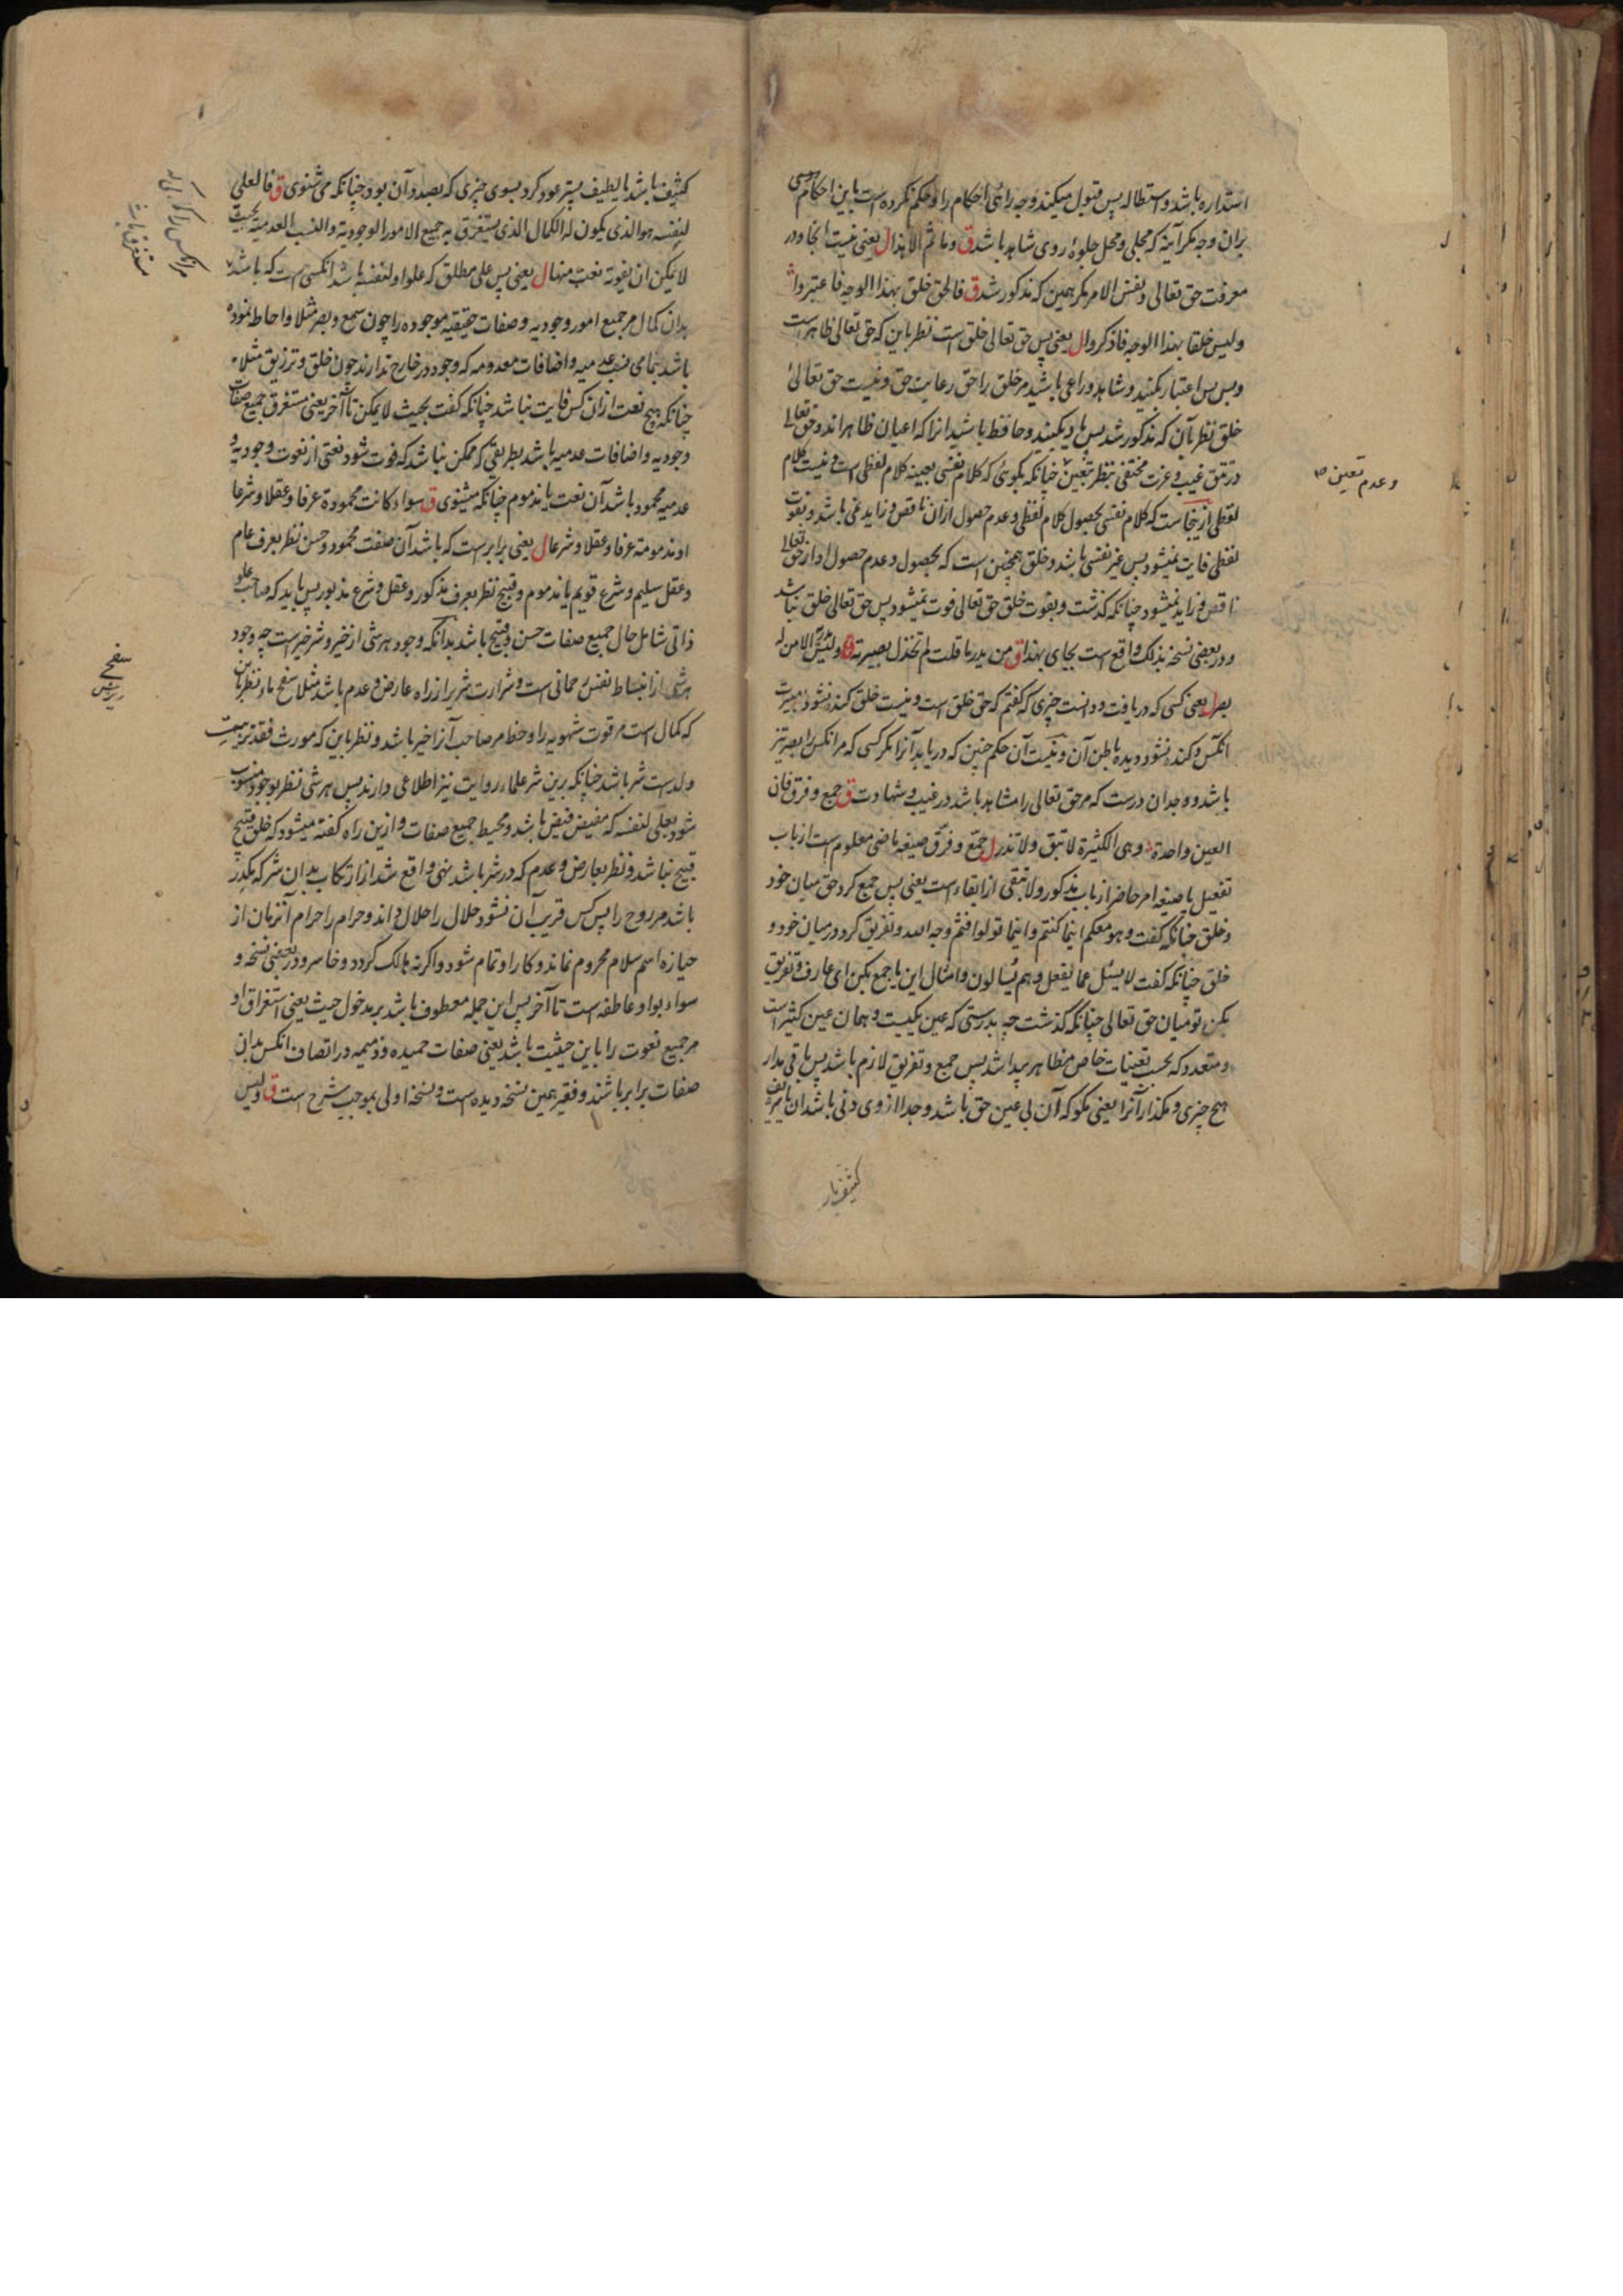 استداره باشد و استطاله پس قبول میکند وجه رائی احکام را و حکم نکرده است باین احکام
بران وجه مکر آینه که مجلی و محل جلوهٔ روی شاهد باشد ق وما ثم الا هذا ل یعنی نیست انجا و در
معرفت حق تعالی و نفس الامر مکر همین که مذکور شد ق فالحق خلق بهذا الوجه فاعتبروا
ولیس خلقا بهذا الوجه فاذکروا ل یعنی پس حق تعالی خلق است نظر باین که حق تعالی ظاهر است
وبس پس اعتبار بکنید و شاهد و راعی باشید مر خلق را حق رعایت حق و نیست حق تعالی
خلق نظر بآن که مذکور شد پس یاد بکنید و حافظ باشید انرا که اعیان ظاهر اند و حق تعالی
در تتق غیب و عزت مختفی نظر بتعین چنانکه بکوئی که کلام نفسی بعینه کلام لفظی است و نیست کلام
وعدم تعین
لفظی ازینجاست که کلام نفسی بحصول کلام لفظی و عدم حصول ازان ناقص و زاید نمی باشد و بفوت
لفظی فایت نمیشود پس غیر نفسی باشد و خلق همچنین است که بحصول و عدم حصول او از حق تعالی
ناقص و زاید نمیشود چنانکه کذشت و بفوت خلق حق تعالی فوت نمیشود پس حق تعالی خلق نباشد
و در بعضی نسخه بذلک واقع است بجای بهذا ق من یدر ما قلت لم تخذل بصیرته ولیس یدریه الا من له
بصر ل یعنی کسی که دریافت و دانست چیزی که کفتم که حق خلق است و نیست خلق کند نشود بصیرت
انکس و کند نشود دیده باطن آن و نیست آن حکم چنین که دریابد آنرا مکر کسی که مر انکس را بصر تیز
باشد و وجدان درست که مر حق تعالی را مشاهد باشد در غیب و شهادت ق جمع و فرق فان
العین واحدة وهی الکثیرة لا تبق ولا تذر ل جمّع و فرّق صیغه ماضی معلوم است از باب
تفعیل یا صیغه امر حاضر از باب مذکور ولا تبقی از ابقاء است یعنی پس جمع کرد حق میان خود
و خلق چنانکه کفت وهو معکم اینما کنتم واینما تولوا فثم وجه الله و تفریق کرد در میان خود و
خلق چنانکه کفت لا یسئل عما یفعل وهم یسالون و امثال این یا جمع بکن ای عارف و تفریق
بکن تو میان حق تعالی چنانکه گذشت چه بدرستی که عین یکیست و همان عین کثیر است
و متعدد که بحسب تعینات خاص مظاهر پیدا شد پس جمع و تفریق لازم باشد پس باقی مدار
هیچ چیزی و مکذار آنرا یعنی مکو که آن بی عین حق باشد و جدا از وی
کثیف با
کثیف باشد یا لطیف پستر عود کرد بسوی چیزی که بصدد آن بود چنانکه می شنوی ق فالعلی
لنفسه هو الذی یکون له الکمال الذی یستغرق به جمیع الامور الوجودیة والنسب العدمیة بحیث
لا یمکن ان یفوته نعت منها ل یعنی پس علی مطلق که علو او لنفسه باشد انکسی است که باشد
بدان کمال مر جمیع امور وجودیه و صفات حقیقیه موجوده را چون سمع و بصر مثلا و احاطه نموده
باشد بتمامی نسب عدمیه و اضافات معدومه که وجود در خارج ندارند چون خلق و ترزیق مثلا
چنانکه هیچ نعت ازان کس فایت نباشد چنانکه کفت بحیث لا یمکن تا آخر یعنی مستغرق جمیع صفات
وجودیه و اضافات عدمیه باشد بطریقی که ممکن نباشد که فوت شود نعتی از نعوت وجودیه و
عدمیه محمود باشد آن نعت یا مذموم چنانکه میشنوی ق سواء کانت محمودة عرفا وعقلا وشرعا
او مذمومة عرفا وعقلا وشرعا ل یعنی برابر است که باشد آن صفت محمود و حسن نظر بعرف عام
و عقل سلیم و شرع قویم یا مذموم و قبیح نظر بعرف مذکور و عقل و شرع مذبور پس باید که صاحب علو
ذاتی شامل حال جمیع صفات حسن و قبیح باشد بدانکه وجود هر شی از خیر و شر خیر است چه وجود
هر شی از انبساط نفس رحمانی است و شرارت شر بر از راه عارض و عدم باشد مثلا سفح ماء نظر باین
سفح
که کمال است مر قوت شهویه را و حظ مر صاحب آنرا خیر باشد و نظر باین که مورث فقد تربیت
ولد است شر باشد چنانکه برین شر علماء روایت نیز اطلاعی دارند پس هر شی نظر بوجود منسوب
شود بعلی لنفسه که مفیض فیض باشد و محیط جمیع صفات و ازین راه کفته میشود که خلق قبیح
قبیح نباشد و نظر بعارض و عدم که در شر باشد نهی واقع شد از ارتکاب بدان شر که مکدر
باشد مر روح را پس کس قریب آن نشود حلال را حلال داند و حرام را حرام آنزمان از
حیازه اسم سلام محروم نماند و کار او تمام شود و اکرنه هالک کردد و خاسر و در بعضی نسخه و
سواء بواو عاطفه است تا آخر پس این جمله معطوف باشد بر مدخول حیث یعنی استغراق او
مر جمیع نعوت را باین حیثیت باشد یعنی صفات حمیده و ذمیمه در اتصاف انکس بدان
صفات برابر باشند و فقیر همین نسخه دیده است و نسخه اولی بموجب شرح است ق ولیس